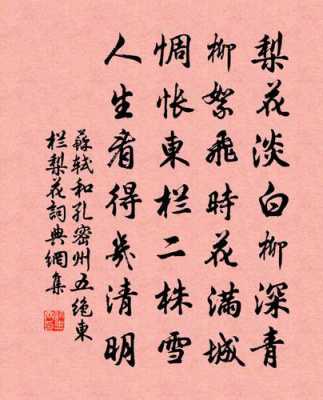 梨花淡白柳深青
柳絮飛時花滿城
惆怅東栏二株雪
人生看得幾清明
蘇轼和孔密州五绝東
栏梨花詞典網集